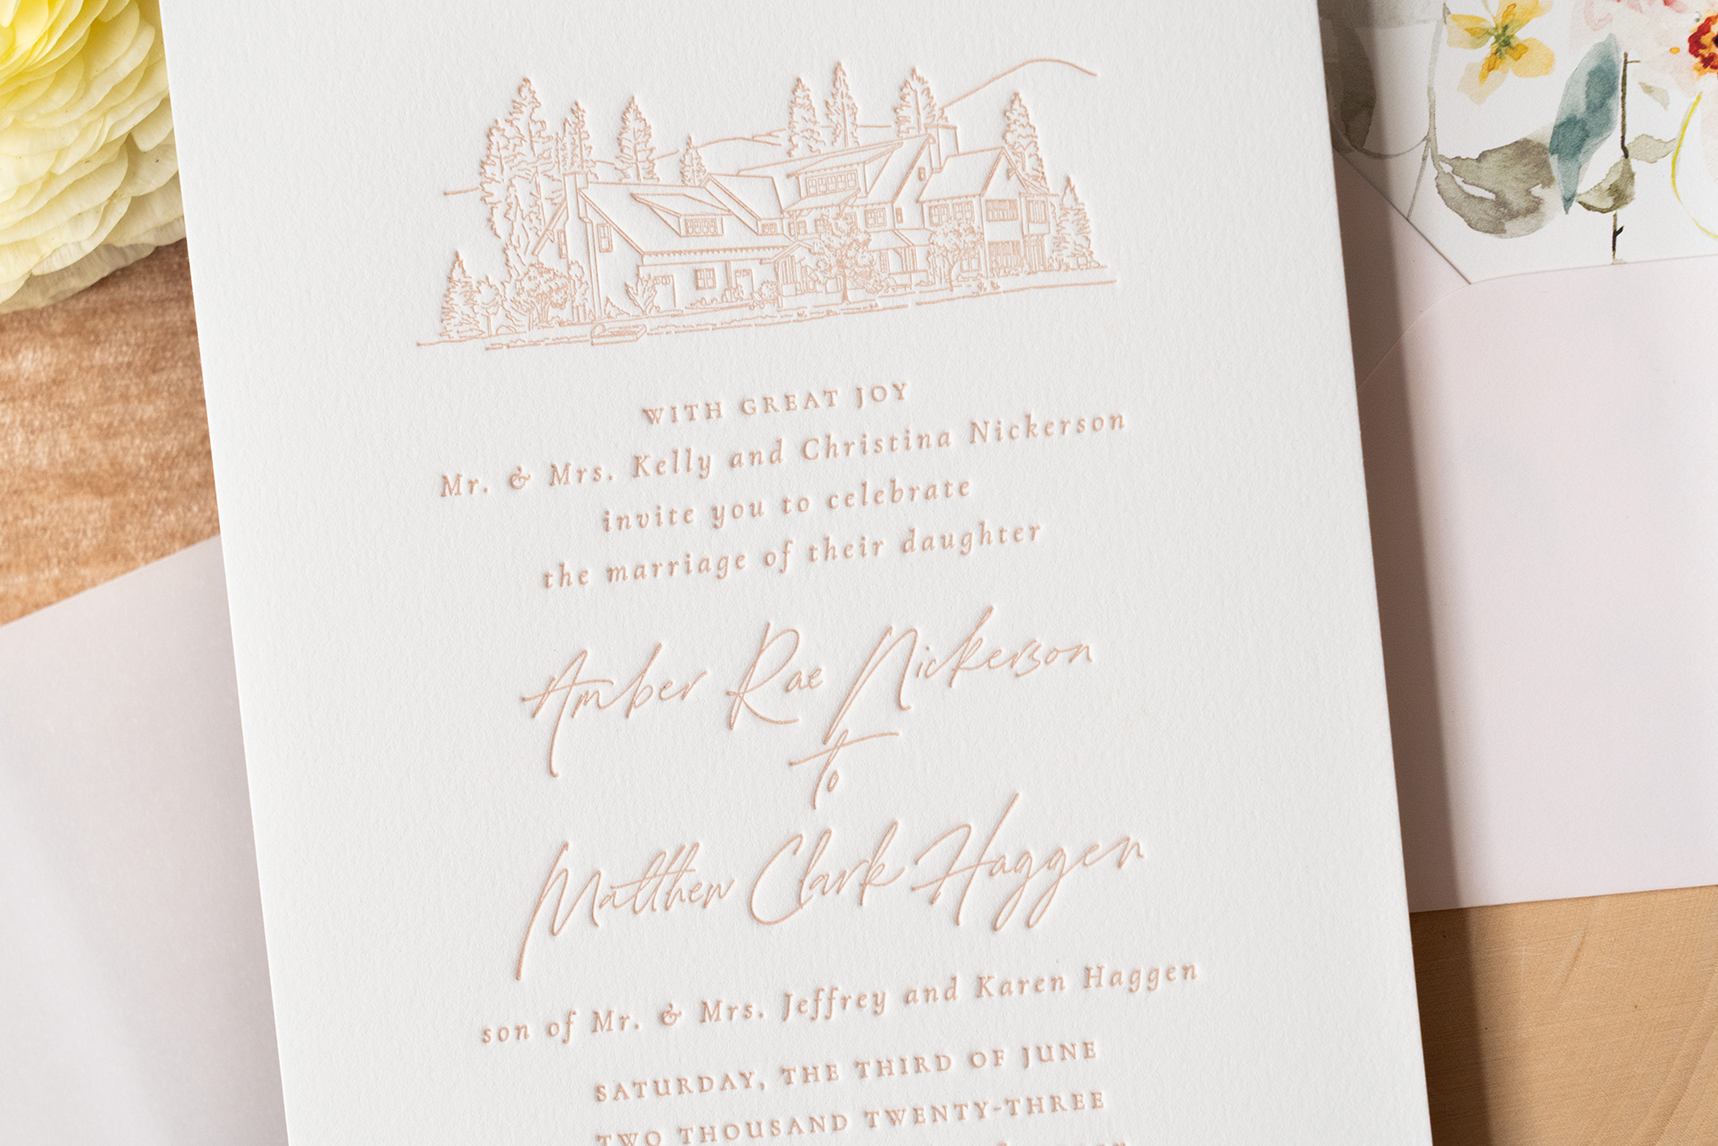 WITH GREAT JOY
Mr. & Mrs. Kelly and Christina Nickerson
invite you to celebrate
the marriage of their daughter
Amber Rae Nickerson
to
Matthew Clark Haggen
son of Mr. & Mrs. Jeffrey and Karen Haggen
SATURDAY, THE THIRD OF JUNE
TWO THOUSAND TWENTY-THREE